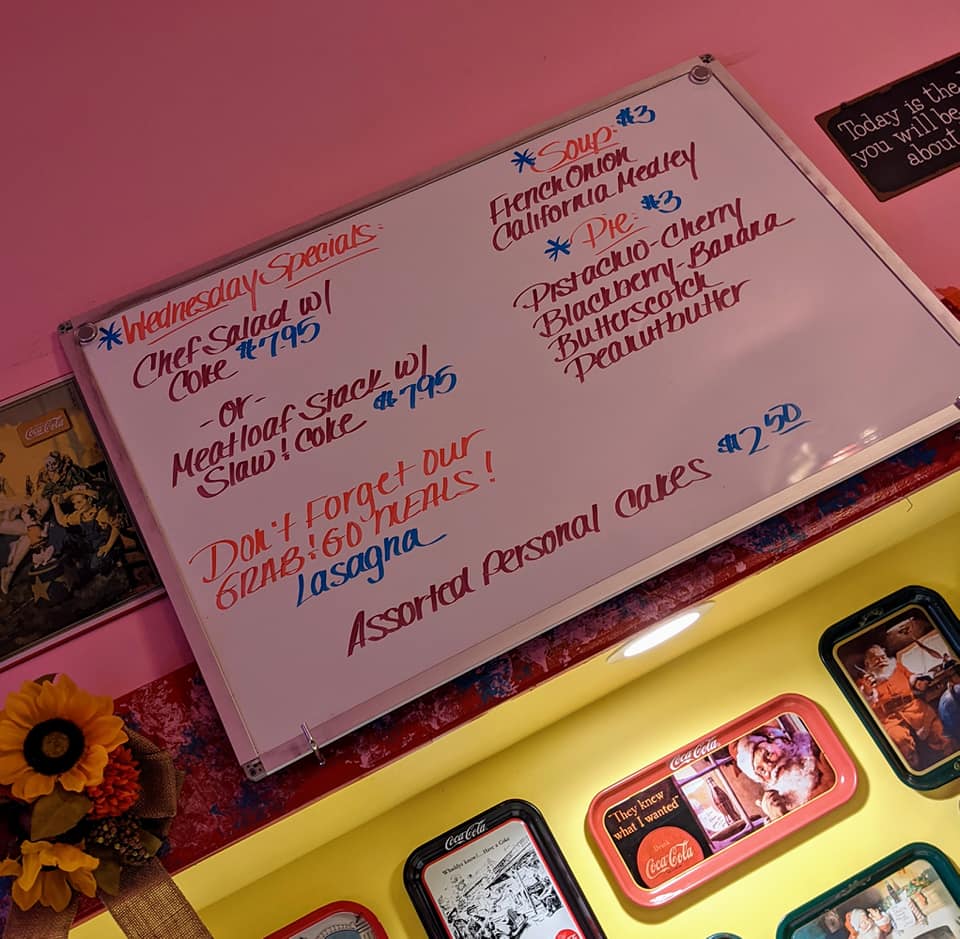 *Wednesday Specials:
Chef Salad w/
Coke $7.95
-or-
Meatloaf Stack w/
Slaw & Coke $7.95
Don't Forget Our
GRAB & GO MEALS!
Lasagna
*Soup: $3
French Onion
California Medley
*Pie: $3
Pistachio-Cherry
Blackberry-Banana
Butterscotch
Peanutbutter
Assorted Personal Cakes $2.50
Today is the
you will be
about
Coca-Cola
Coca-Cola
"They knew
what I wanted"
Drink
Coca-Cola
Coca-Cola
Whaddya know!... Have a Coke